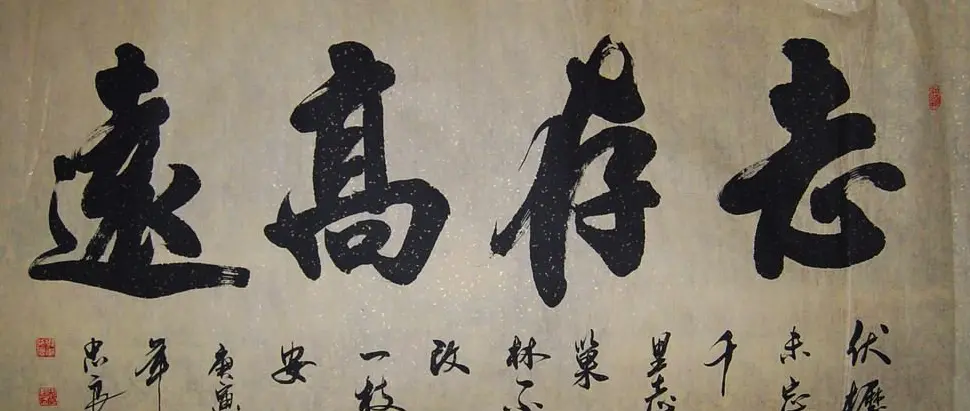 志存高遠
伏櫪
未忘
千
里志
巢
林不
改
一枝
安
庚寅
年
忠